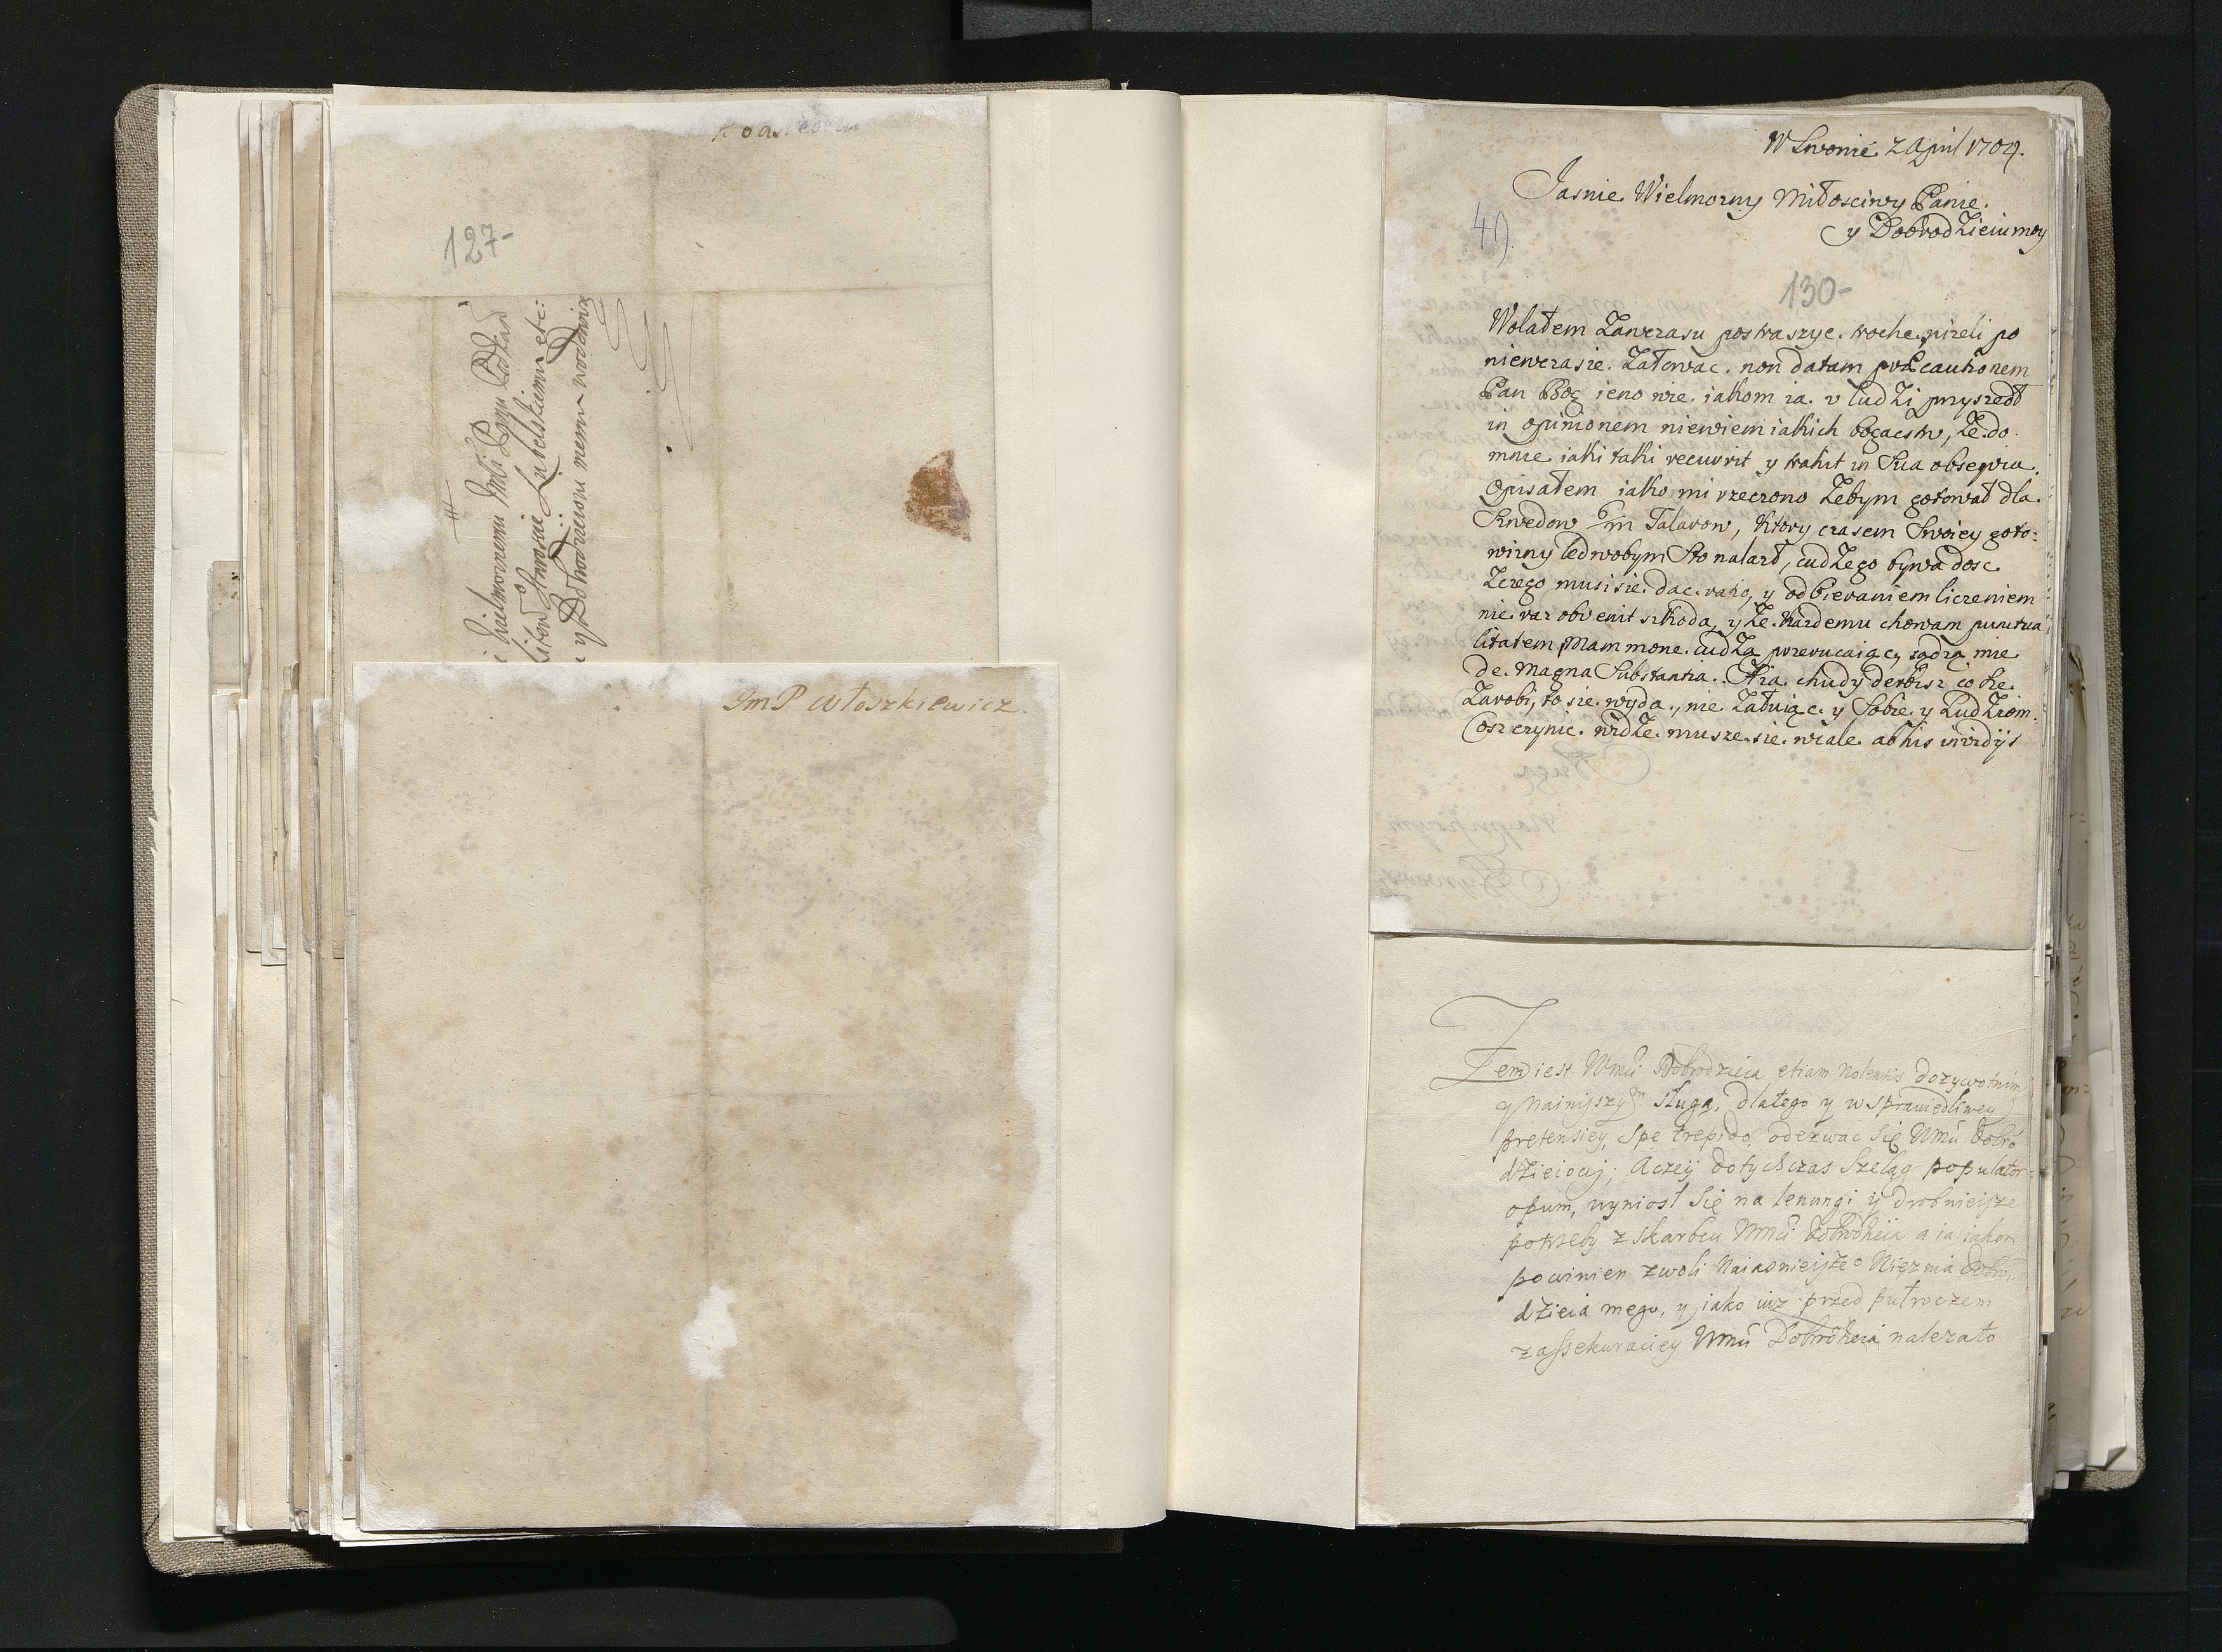 127-
Wielmornemu Jmći Panu Podkar
Staroscie Lubelskiemu etc:
y Dobrodzieiowi memu
JmP Wloszkiewicz.
W Lwowie 2 April 1704.
Jasnie Wielmozny Miłosciwy Panie.
y Dobrodzieiu moy
49
130-
Wolałem Zawczasu poswaszyc. troche, nizeli po
niewczasie. Załowac. non datam præcautionem
Pan Bog ieno wie. iakom ia. v ludzi przyszedł
in opinionem niewiem iakich bogactw, Ze. do
mnie iaki taki recurrit y trahit in Sua obsequia.
Opisałem iako mi rzeczono Zebym gotował dla.
Szwedow 6/m Talarow, Ktory czasem Swoiey goto:
wizny ledwobym Sto nalazł, cudzego bywa dosc.
Zczego musi sie. dac. rata, y odbieraniem liczeniem
nie raz obvenit szkoda, y Ze. Kazdemu chowam punctua
litatem Mammone. cudzą przerucaiąc, sądzą mie
de. Magna Substantia. A ia. chudy derbisz co sie.
Zarobi, to sie. wyda., nie. Załuiąc. y Sobie. y Ludziom.
Cosz czynic. widze. musze. sie. wcale. ab his invidijs
Zem iest Wmći Dobrodzieia etiam nolentis dozywotnim
y Nainiszym sługą, dlatego y w sprawiedliwey
pretensiey, Spe trepido, odezwac się Wmći dobro
dzieiowi; Aczey dotychczas Szeląg populator
opum, wyniosł się na lenungi y drobnieisze
potrzeby z skarbcu Wmći dobrodzieia a ia iakom
powinien z woli Naiasnieiszego Xięzcia dobro
dzieia mego, y iako iuz przed pułroczem
z assekuraciey Wmći Dobrodzieia nalezało